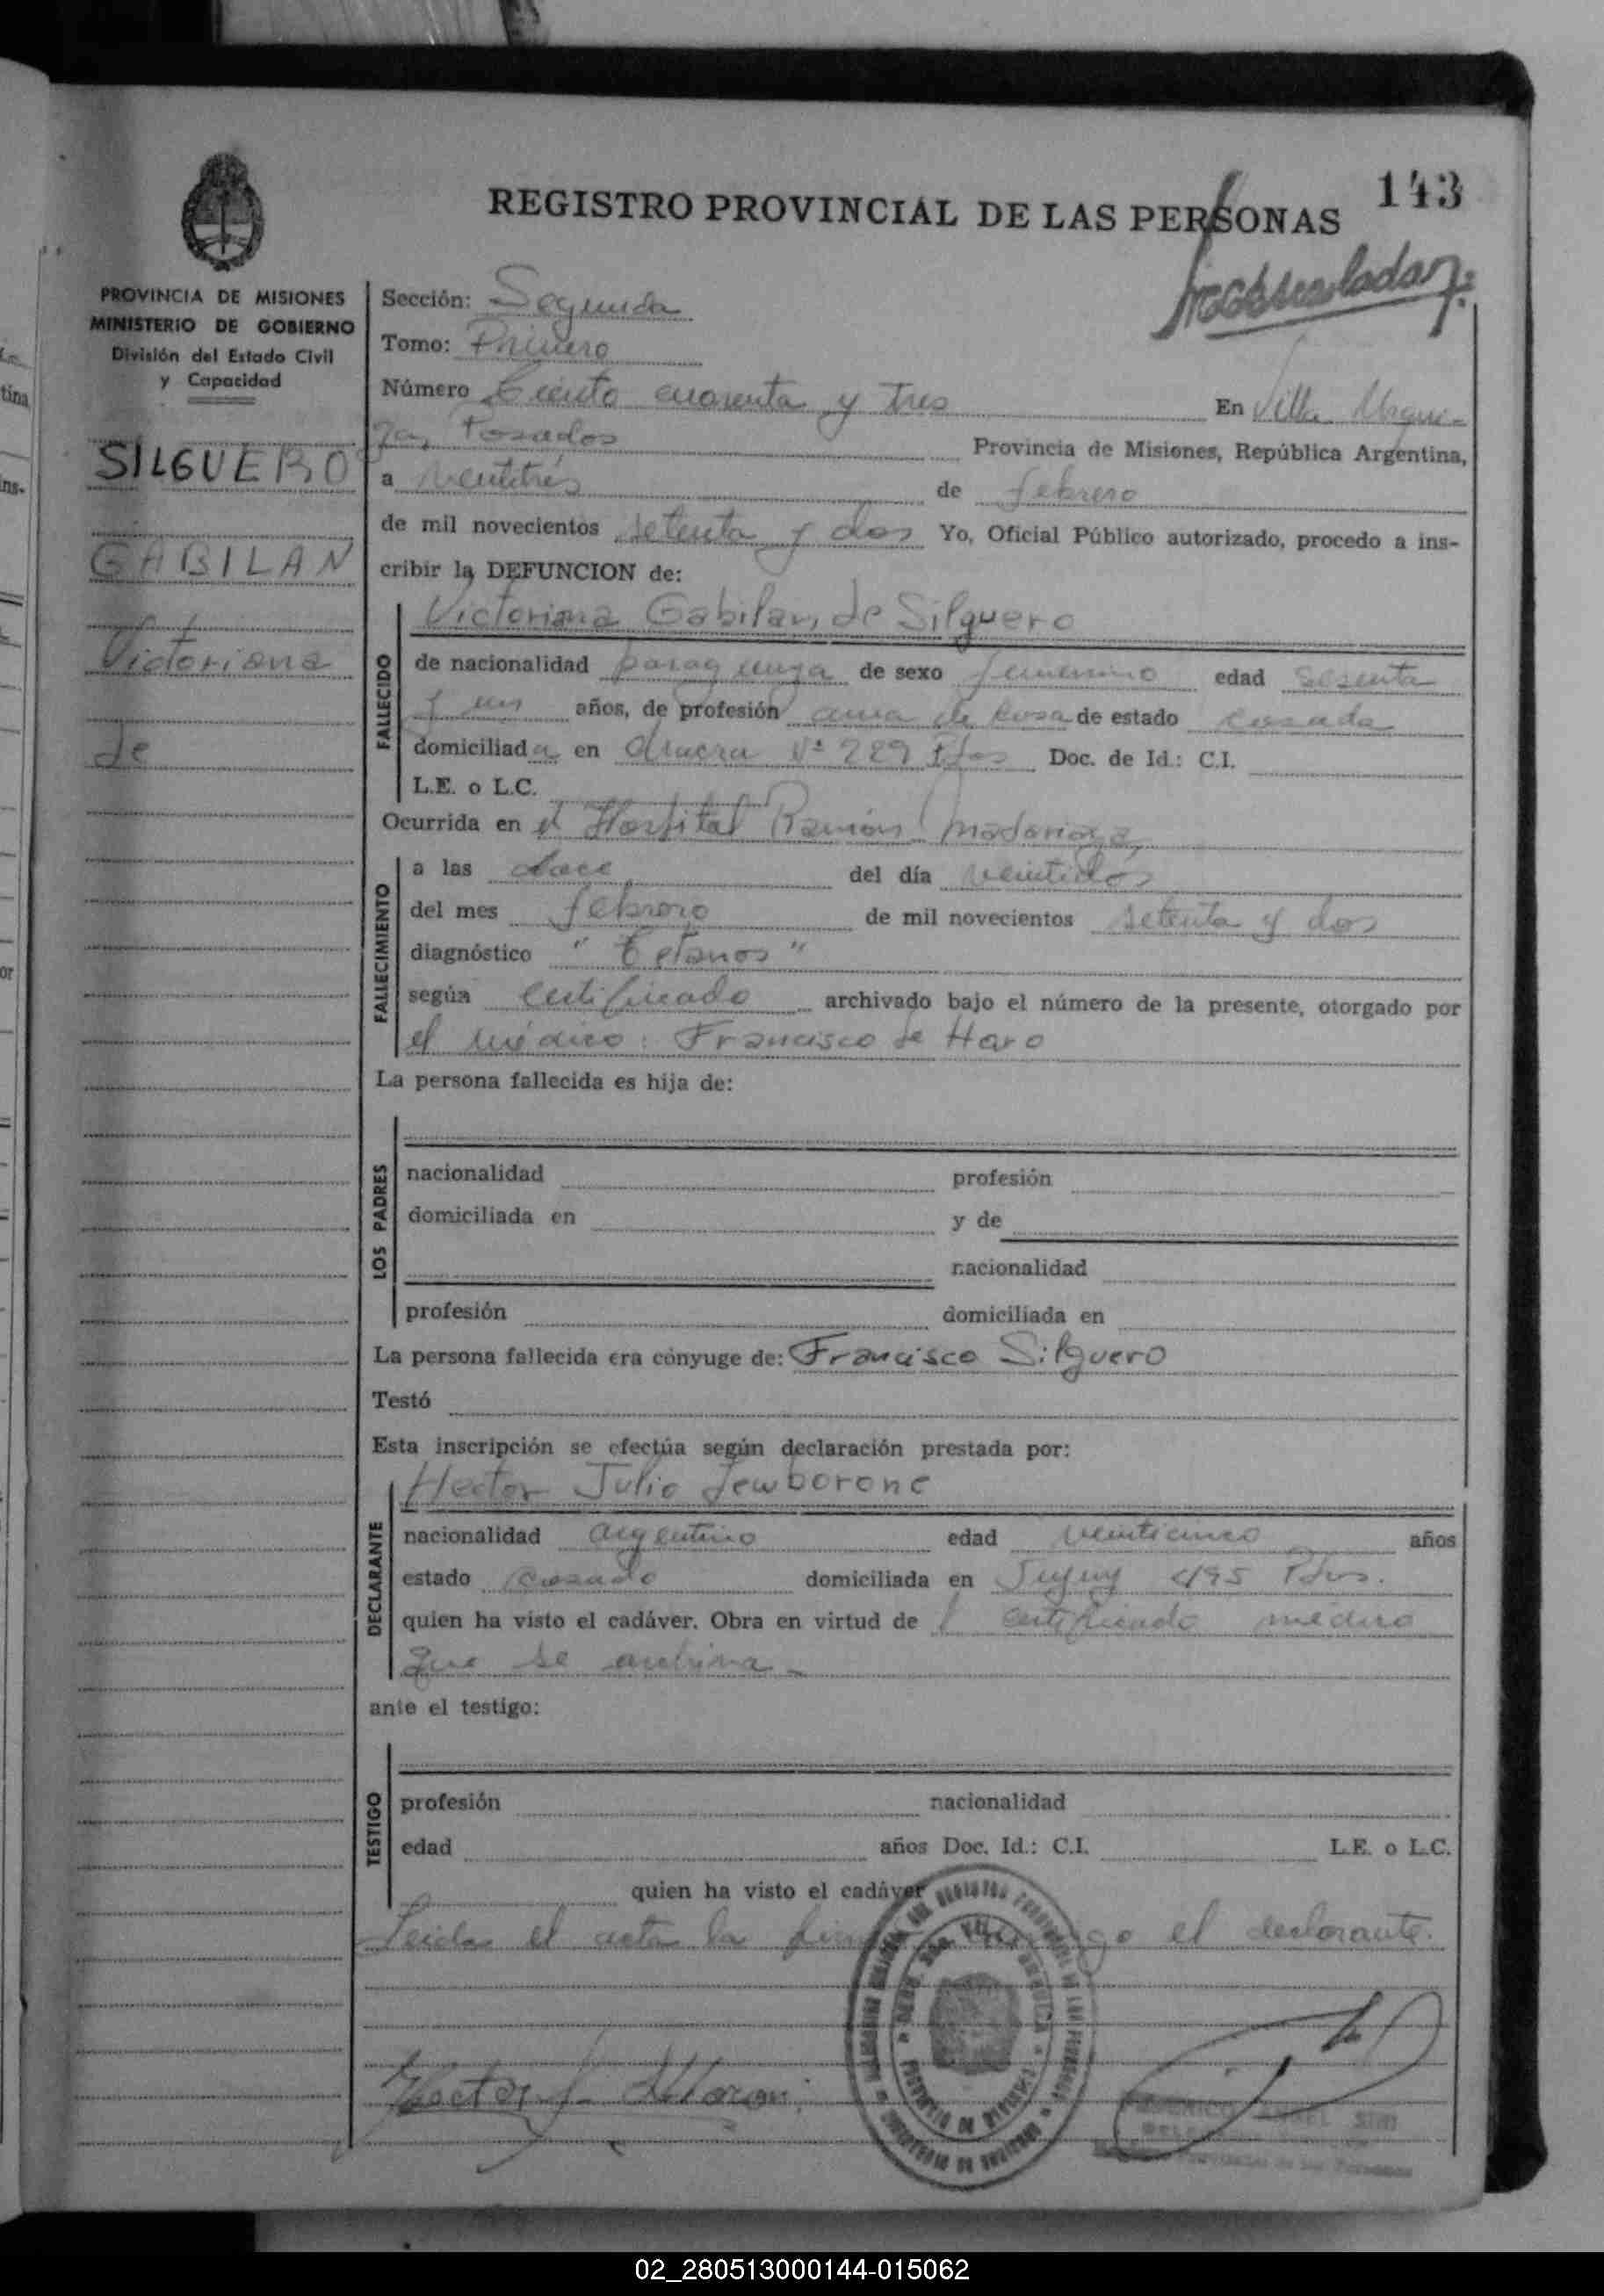 143
REGISTRO PROVINCIAL DE LAS PERSONAS
PROVINCIA DE MISIONES
MINISTERIO DE GOBIERNO
División del Estado Civil
y Capacidad
SILGUERO
GABILAN
Victoriana
de
Sección: Segunda
Tomo: Primero
Número Ciento cuarenta y tres En Villa Urqui-
za, Posadas Provincia de Misiones, República Argentina,
a veintitrés de febrero
de mil novecientos setenta y dos Yo, Oficial Público autorizado, procedo a ins-
cribir la DEFUNCION de:
Victoriana Gabilan, de Silguero
FALLECIDO
de nacionalidad paraguaya de sexo femenino edad sesenta
y un años, de profesión ama de casa de estado casada
domiciliada en Nº 229 Pdas Doc. de Id.: C.I.
L.E. o L.C.
Ocurrida en el Hospital Ramón Madariaga,
FALLECIMIENTO
a las doce del día veintidos
del mes febrero de mil novecientos setenta y dos
diagnóstico " Tetanos "
según certificado archivado bajo el número de la presente, otorgado por
el médico: Francisco de Haro
La persona fallecida es hija de:
LOS PADRES
nacionalidad profesión
domiciliada en y de
nacionalidad
profesión domiciliada en
La persona fallecida era cónyuge de: Francisco Silguero
Testó
Esta inscripción se efectúa según declaración prestada por:
Hector Julio
DECLARANTE
nacionalidad argentino edad veinticinco años
estado casado domiciliada en Jujuy 495 Pdas.
quien ha visto el cadáver. Obra en virtud de l certificado médico
que se archiva
ante el testigo:
TESTIGO
profesión nacionalidad
edad años Doc. Id.: C.I. L.E. o L.C.
quien ha visto el cadáver
Leida el acta la el declarante.
Hector J.
02_280513000144-015062